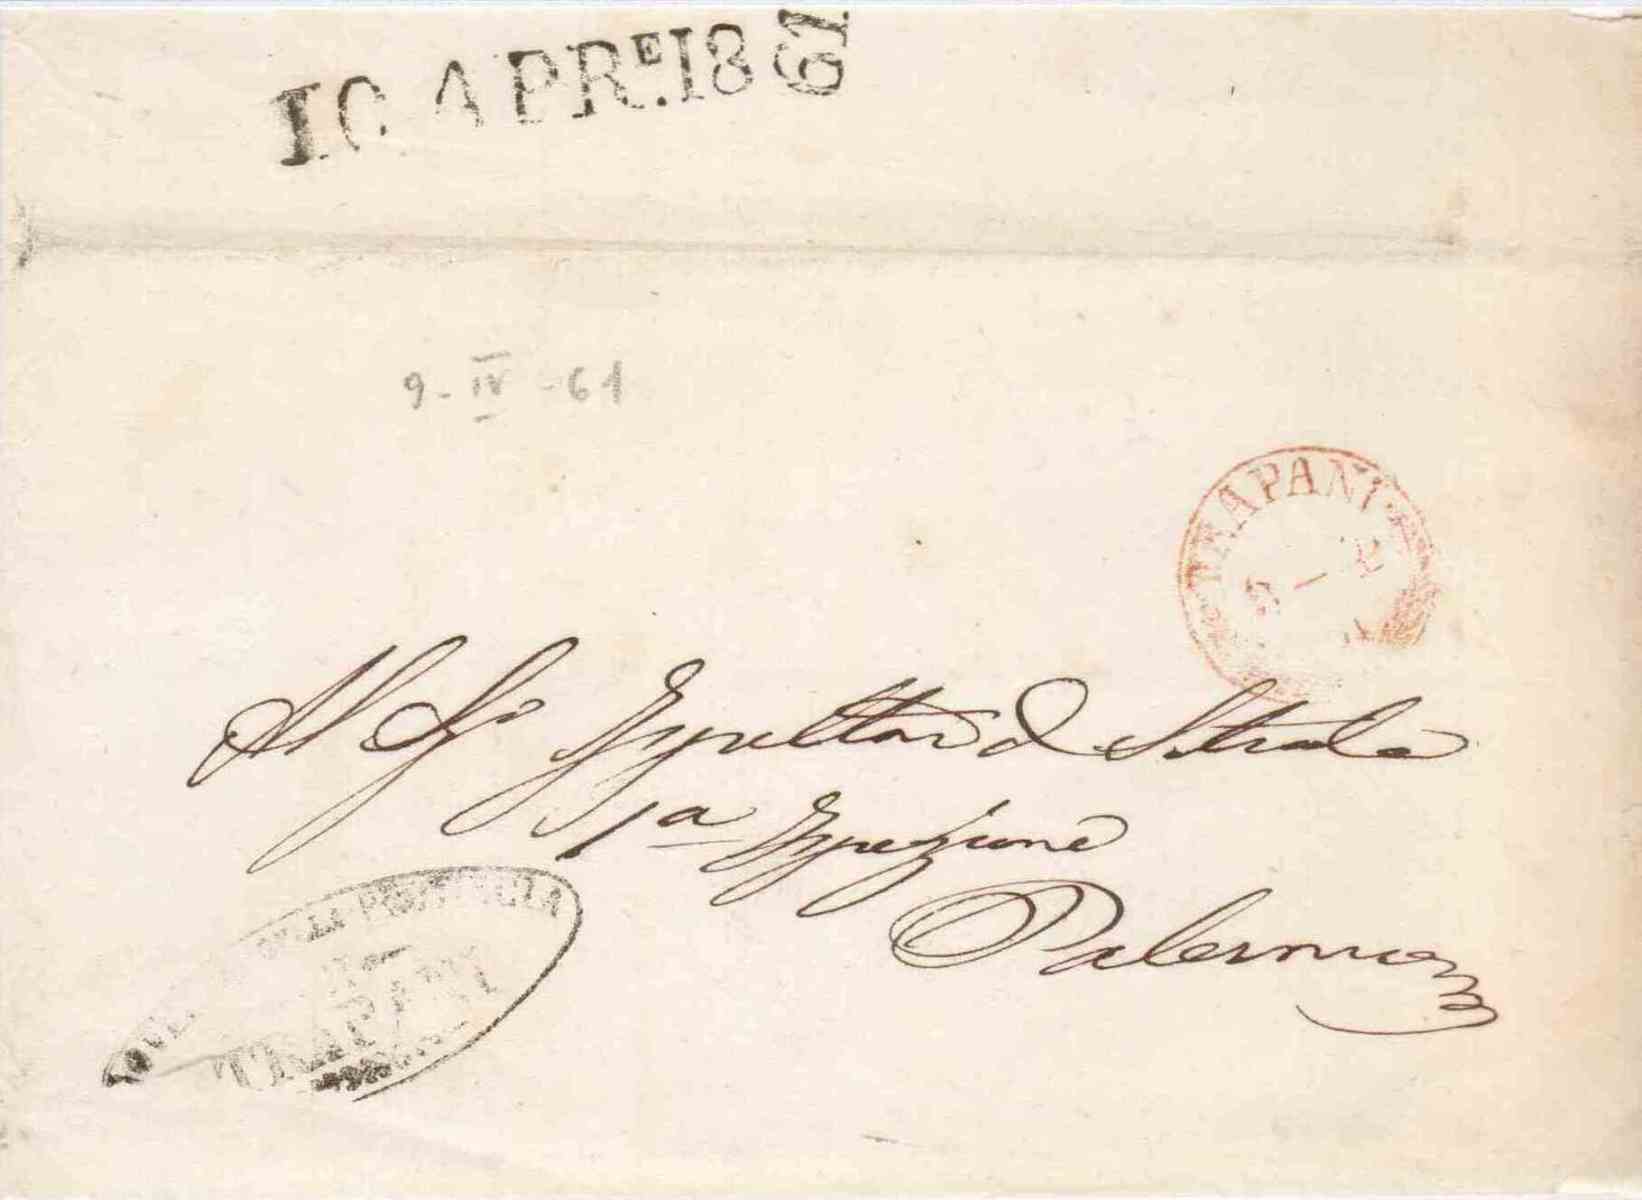 10 APRE. 1861
9-IV-61
TRAPANI
Al Sigr Ispettore di Strade
1a Ispezione
Palermo
DELLA PROVINCIA
DI
TRAPANI